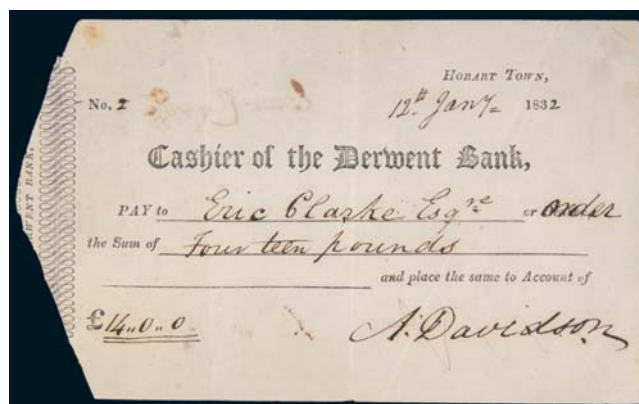 HOBART TOWN,
No. 2
12th Jany 1832
WENT BANK.
Cashier of the Derwent Bank,
PAY to Eric Clarke Esqre or order
the Sum of Fourteen pounds
and place the same to Account of
£14..0..0
A. Davidson